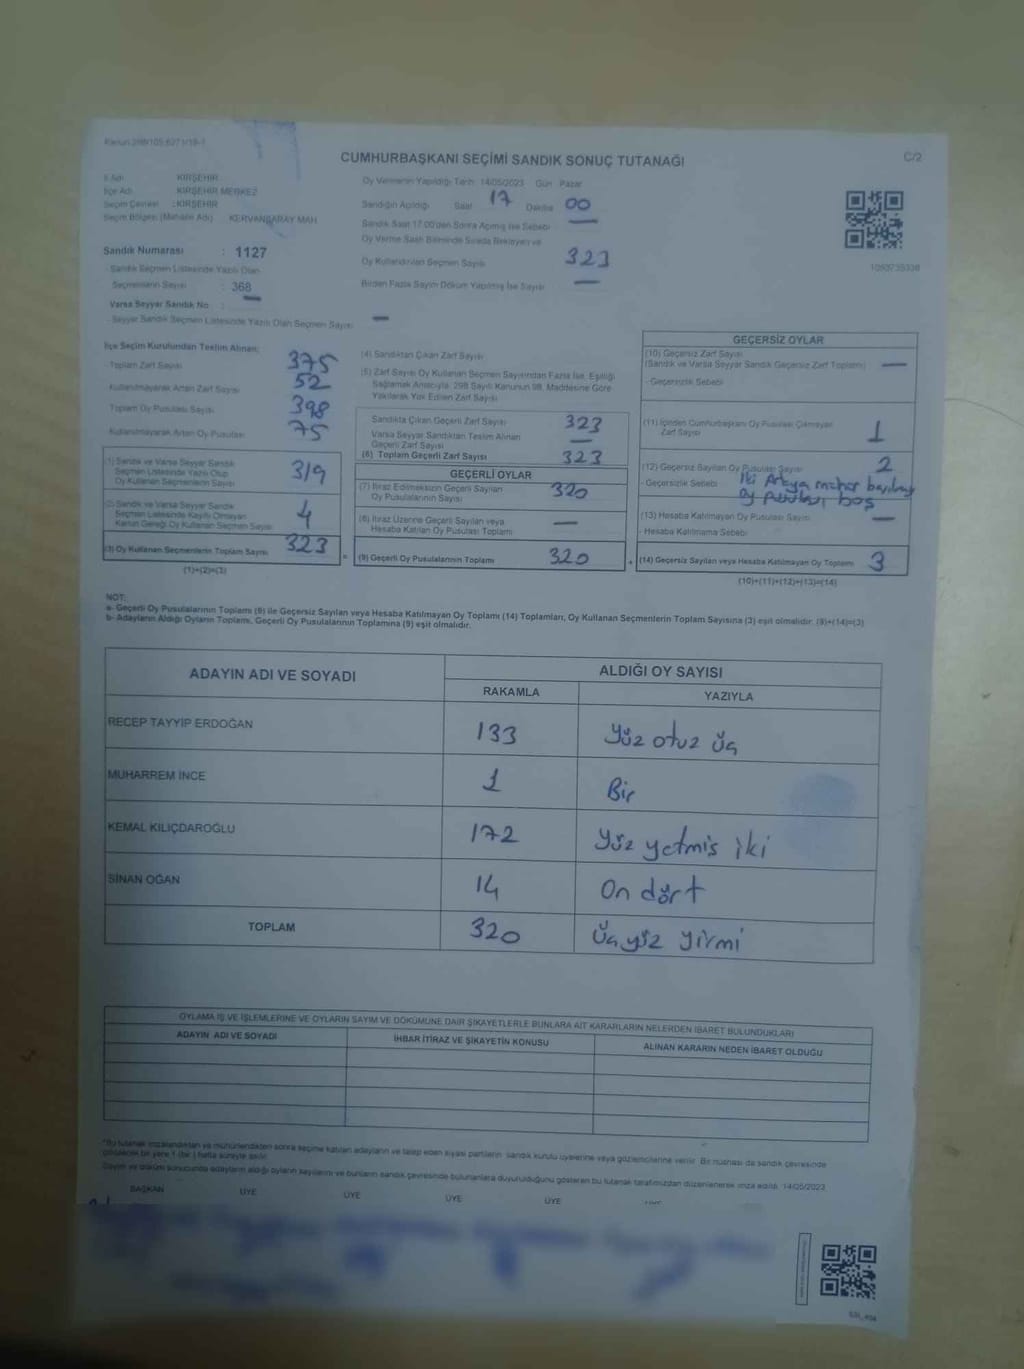 Kanun:298/105,6271/19-1
CUMHURBAŞKANI SEÇİMİ SANDIK SONUÇ TUTANAĞI
C/2
İl Adı KIRŞEHİR
İlçe Adı KIRŞEHİR MERKEZ
Seçim Çevresi : KIRŞEHİR
Seçim Bölgesi (Mahalle Adı) KERVANSARAY MAH.
Sandık Numarası : 1127
- Sandık Seçmen Listesinde Yazılı Olan
Seçmenlerin Sayısı : 368
Varsa Seyyar Sandık No : —
- Seyyar Sandık Seçmen Listesinde Yazılı Olan Seçmen Sayısı —
Oy Vermenin Yapıldığı Tarih: 14/05/2023 Gün Pazar
Sandığın Açıldığı Saat 17 Dakika 00
Sandık Saat 17.00'den Sonra Açılmış İse Sebebi —
Oy Verme Saati Bitiminde Sırada Bekleyen ve
Oy Kullandırılan Seçmen Sayısı 323
Birden Fazla Sayım Döküm Yapılmış İse Sayısı —
1093735338
İlçe Seçim Kurulundan Teslim Alınan:
- Toplam Zarf Sayısı 375
- Kullanılmayarak Artan Zarf Sayısı 52
- Toplam Oy Pusulası Sayısı 398
- Kullanılmayarak Artan Oy Pusulası 75
(1) Sandık ve Varsa Seyyar Sandık
Seçmen Listesinde Yazılı Olup
Oy Kullanan Seçmenlerin Sayısı 319
(2) Sandık ve Varsa Seyyar Sandık
Seçmen Listesinde Kayıtlı Olmayan
Kanun Gereği Oy Kullanan Seçmen Sayısı 4
(3) Oy Kullanan Seçmenlerin Toplam Sayısı 323
(1)+(2)=(3)
(4) Sandıktan Çıkan Zarf Sayısı
(5) Zarf Sayısı Oy Kullanan Seçmen Sayısından Fazla İse, Eşitliği
Sağlamak Amacıyla, 298 Sayılı Kanunun 98. Maddesine Göre
Yakılarak Yok Edilen Zarf Sayısı
Sandıkta Çıkan Geçerli Zarf Sayısı 323
Varsa Seyyar Sandıktan Teslim Alınan
Geçerli Zarf Sayısı —
(6) Toplam Geçerli Zarf Sayısı 323
GEÇERLİ OYLAR
(7) İtiraz Edilmeksizin Geçerli Sayılan
Oy Pusulalarının Sayısı 320
(8) İtiraz Üzerine Geçerli Sayılan veya
Hesaba Katılan Oy Pusulası Toplamı —
(9) Geçerli Oy Pusulalarının Toplamı 320
GEÇERSİZ OYLAR
(10) Geçersiz Zarf Sayısı
(Sandık ve Varsa Seyyar Sandık Geçersiz Zarf Toplamı) —
- Geçersizlik Sebebi
(11) İçinden Cumhurbaşkanı Oy Pusulası Çıkmayan
Zarf Sayısı 1
(12) Geçersiz Sayılan Oy Pusulası Sayısı 2
- Geçersizlik Sebebi İki
oy pusulası boş
(13) Hesaba Katılmayan Oy Pusulası Sayısı —
- Hesaba Katılmama Sebebi
(14) Geçersiz Sayılan veya Hesaba Katılmayan Oy Toplamı 3
(10)+(11)+(12)+(13)=(14)
NOT:
a- Geçerli Oy Pusulalarının Toplamı (9) ile Geçersiz Sayılan veya Hesaba Katılmayan Oy Toplamı (14) Toplamları, Oy Kullanan Seçmenlerin Toplam Sayısına (3) eşit olmalıdır. (9)+(14)=(3)
b- Adayların Aldığı Oyların Toplamı, Geçerli Oy Pusulalarının Toplamına (9) eşit olmalıdır.
ADAYIN ADI VE SOYADI ALDIĞI OY SAYISI
RAKAMLA YAZIYLA
RECEP TAYYİP ERDOĞAN 133 Yüz otuz üç
MUHARREM İNCE 1 Bir
KEMAL KILIÇDAROĞLU 172 Yüz yetmiş iki
SİNAN OĞAN 14 On dört
TOPLAM 320 Üçyüz yirmi
OYLAMA İŞ VE İŞLEMLERİNE VE OYLARIN SAYIM VE DÖKÜMÜNE DAİR ŞİKAYETLERLE BUNLARA AİT KARARLARIN NELERDEN İBARET BULUNDUKLARI
ADAYIN ADI VE SOYADI İHBAR İTİRAZ VE ŞİKAYETİN KONUSU ALINAN KARARIN NEDEN İBARET OLDUĞU
*Bu tutanak imzalandıktan ve mühürlendikten sonra seçime katılan adayların ve talep eden siyasi partilerin sandık kurulu üyelerine veya gözlemcilerine verilir. Bir nüshası da sandık çevresinde
görülecek bir yere 1 (bir) hafta süreyle asılır.
Sayım ve döküm sonucunda adayların aldığı oyların sayılarını ve bunların sandık çevresinde bulunanlara duyurulduğunu gösteren bu tutanak tarafımızdan düzenlenerek imza edildi. 14/05/2023
BAŞKAN ÜYE ÜYE ÜYE ÜYE